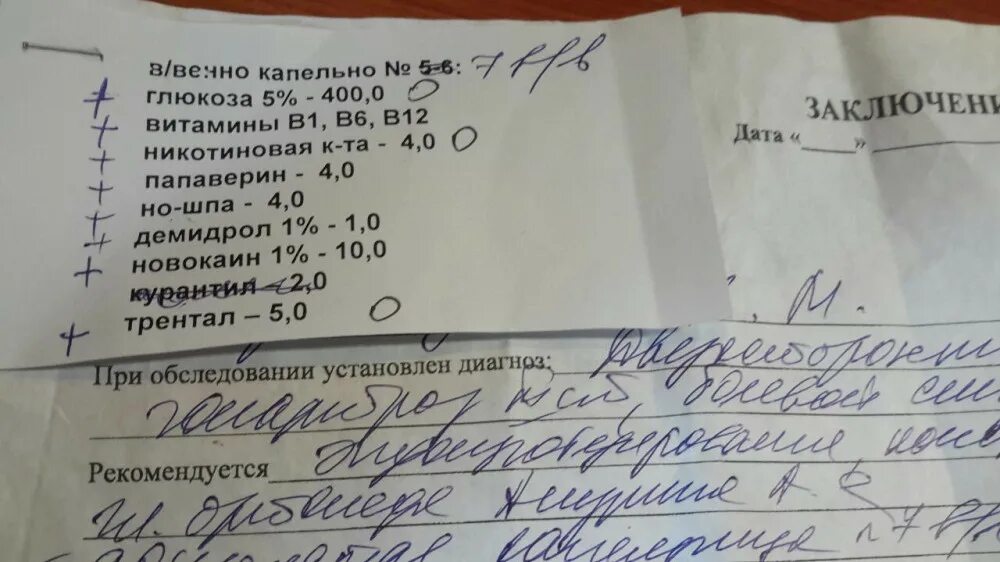 в/венно капельно № 5-6: 7 в/в
+ глюкоза 5% - 400,0
+ витамины В1, В6, В12
+ никотиновая к-та - 4,0
+ папаверин - 4,0
+ но-шпа - 4,0
+ демидрол 1% - 1,0
+ новокаин 1% - 10,0
курантил – 2,0
+ трентал – 5,0
ЗАКЛЮЧЕНИ
Дата «____» 
, М.
При обследовании установлен диагноз: Двухсторонни
гонартроз болевой син
Рекомендуется
шт. ортопеда А.
капельница №7 в/в